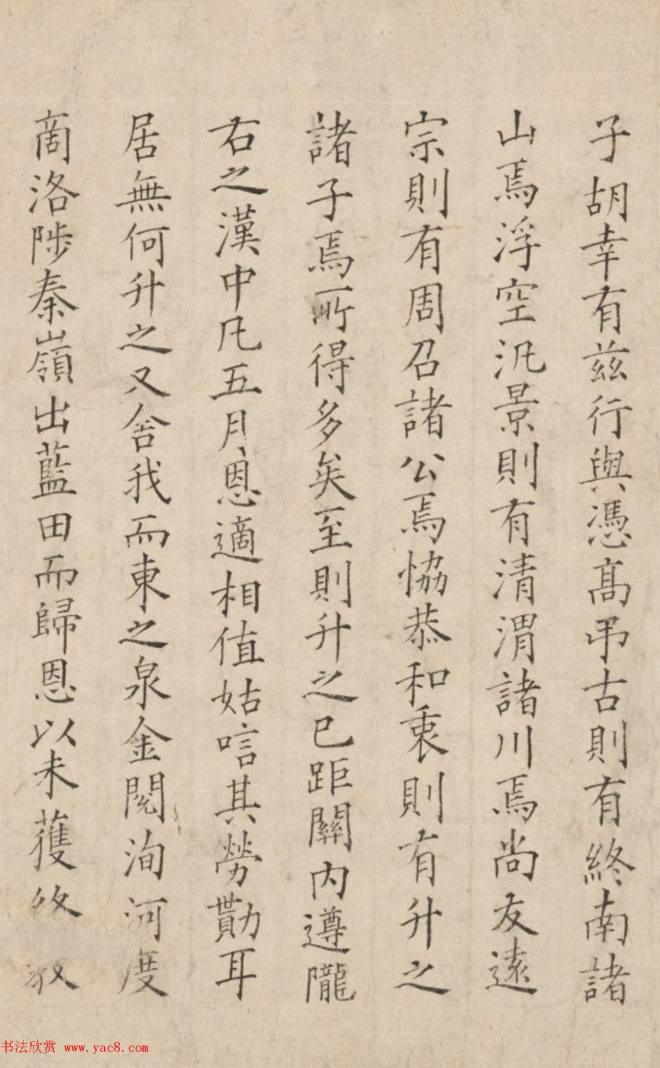 子胡幸有兹行與憑髙吊古則有終南諸
山焉浮空汎景則有清渭諸川焉尚友遠
宗則有周召諸公焉恊恭和衷則有升之
諸子焉所得多矣至則升之已距關内遵隴
右之漢中凡五月恩適相值姑唁其勞勩耳
居無何升之又舍我而東之泉金閱洵河度
啇洛陟秦嶺出藍田而歸恩以未獲終
书法欣赏 www.yac8.com